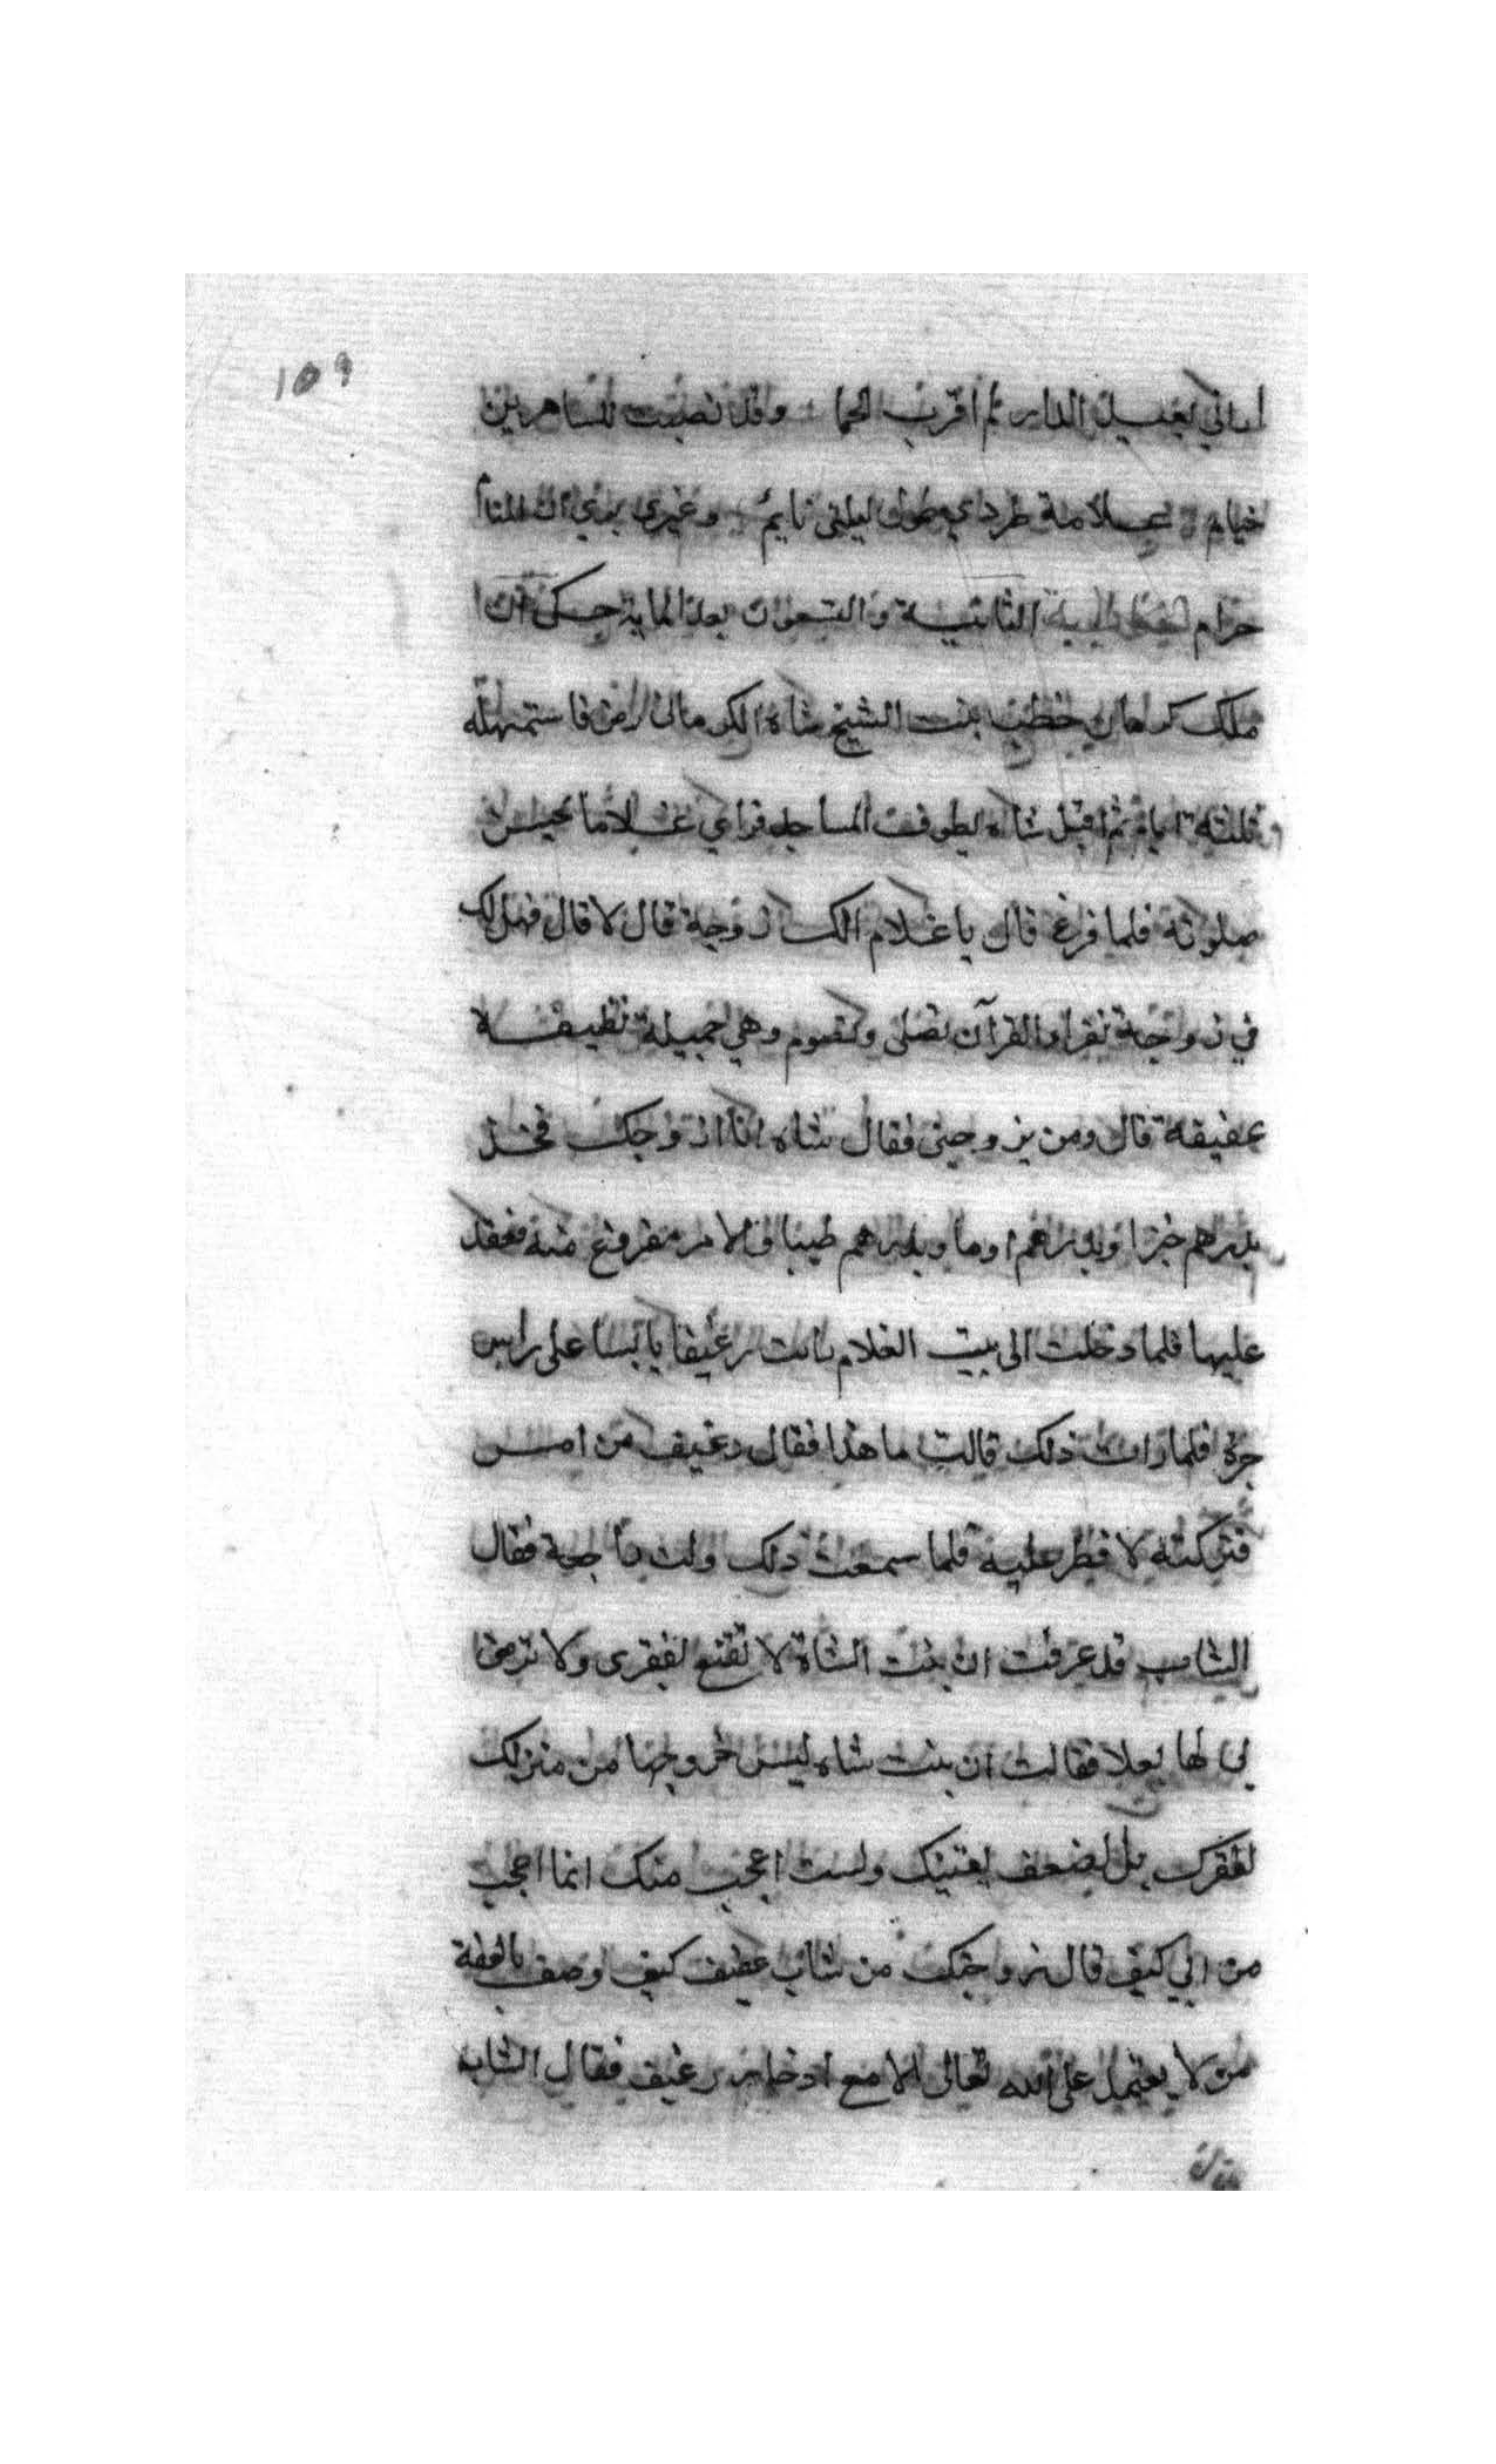 ١٥٩
اراني بعيد الدار لم اقرب الحما وقد نصبت للساهرين
خيام علامة طردي طول ليلى نايم وغيري يرى ان المنام
حرام الحكاية الثانية والتسعون بعد الماية حكى ان
ملك كرمان خطب بنت الشيخ شاه الكرماني رض فاستمهله
ثلثة ايام ثم اقبل شاه يطوف المساجد فراي غلاما يحسن
صلوته فلما فرغ قال يا غلام الك زوجة قال لا قال فهل لك
في زوجة تقراء القرآن تصلي وتصوم وهي جميلة نظيفة
عفيفة قال ومن يزوجني فقال شاه انا ازوجك فخذ
بدرهم خبزا وبدرهم ادما وبدرهم طيبا فالامر مفروغ منه فعقد
عليها فلما دخلت الى بيت الغلام رات رغيفا يابسا على راس
جرة فلما رات ذلك قالت ما هذا فقال رغيف من امس
فتركته لافطر عليه فلما سمعت ذلك ولت راجعة فقال
الشاب قد عرفت ان بنت الشاة لا تقنع لفقرى ولا ترضى
بي لها بعلا فقالت ان بنت شاه ليس خروجها من منزلك
لفقرك بل لضعف يقينك ولست اعجب منك انما اعجب
من ابي كيف قال زوجتك من شاب عفيف كيف وصف بالعفة
من لا يعتمد على الله تعالى الا مع ادخار رغيف فقال الشاب